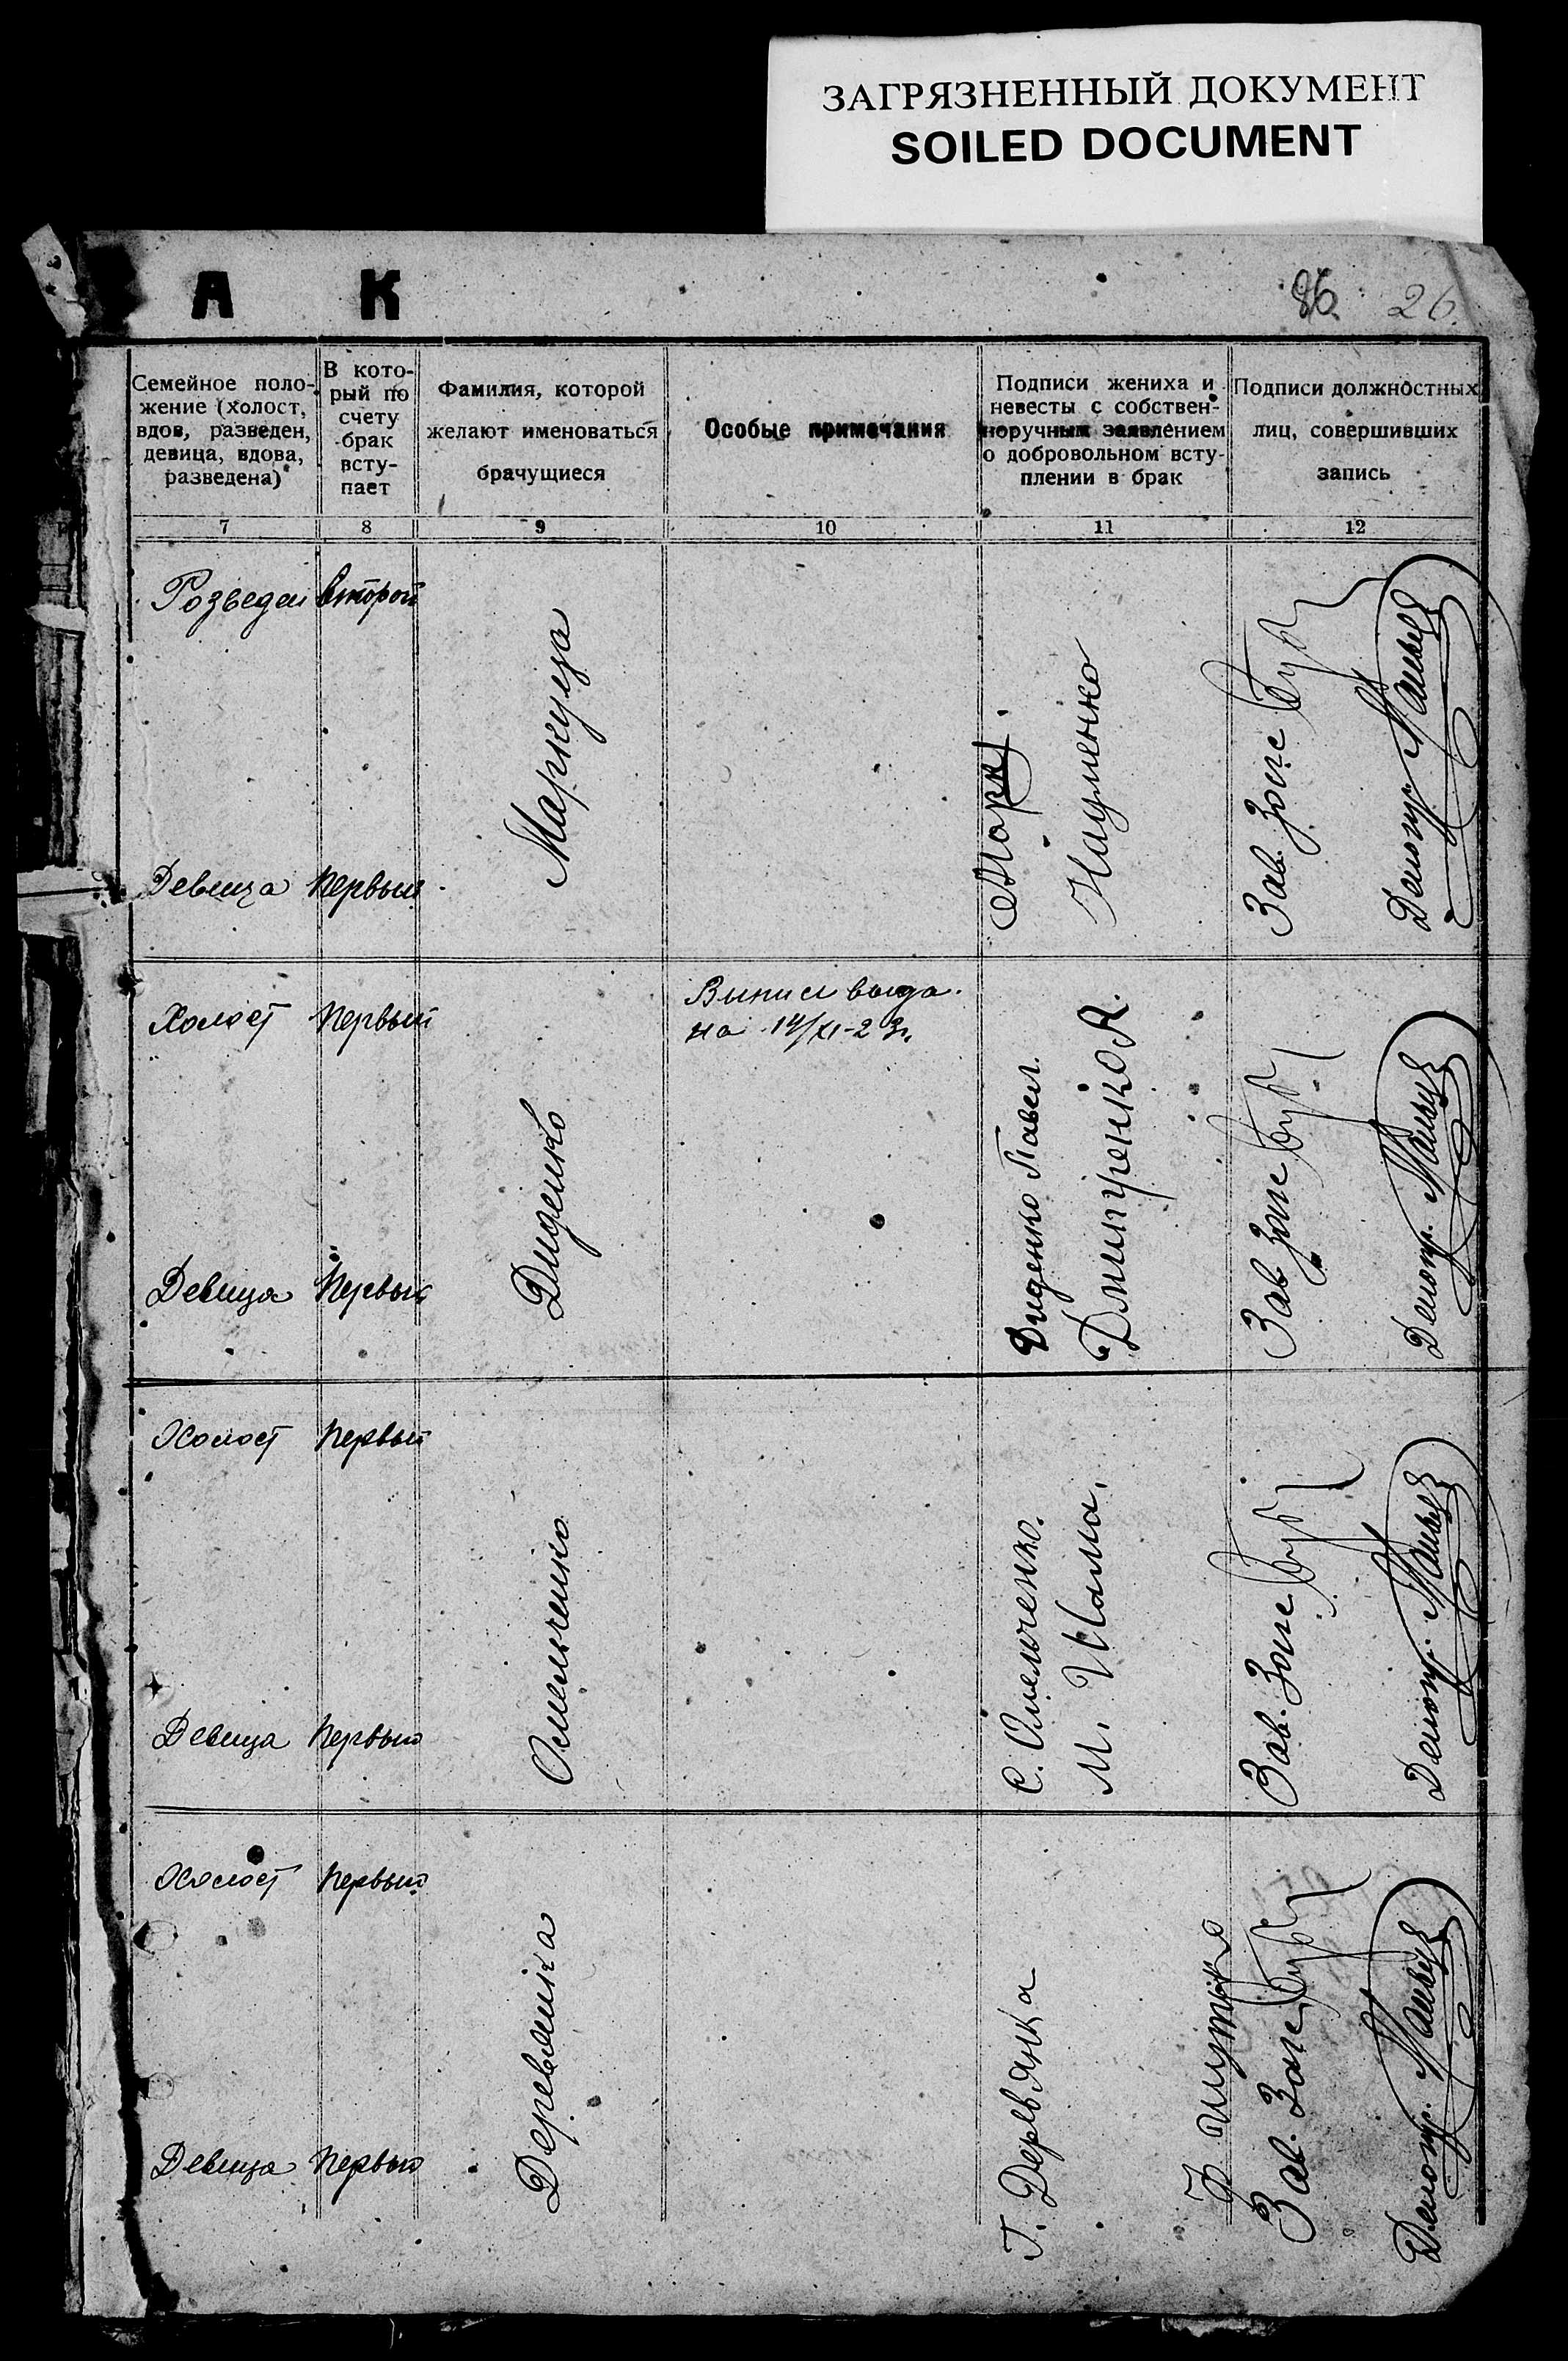 ЗАГРЯЗНЕННЫЙ ДОКУМЕНТ
SOILED DOCUMENT
А К
86. 26.
Семейное поло-
жение (холост,
вдов, разведен,
девица, вдова,
разведена)
В кото-
рый по
счету
брак
всту-
пает
Фамилия, которой
желают именоваться
брачущиеся
Особые примечания
Подписи жениха и
невесты с собствен-
норучным заявлением
о добровольном всту-
плении в брак
Подписи должностных
лиц, совершивших
запись
7 8 9 10 11 12
Розведен второй
Девица первый
Маркуца
Науменко
Зав. Загс
Делопр.
Холост первый
Девица первый
Диденко
Выпись выда
на 14/XI-23г.
Диденко Павел.
Дмитренко А.
Зав Загс
Делопр.
Холост первый
Девица первый
Омельченко
С. Омельченко.
М.
Зав. Загс
Делопр.
Холост первый
Девица первый
Деревянка
Г. Деревянка
Ф
Зав. Загс
Делопр.